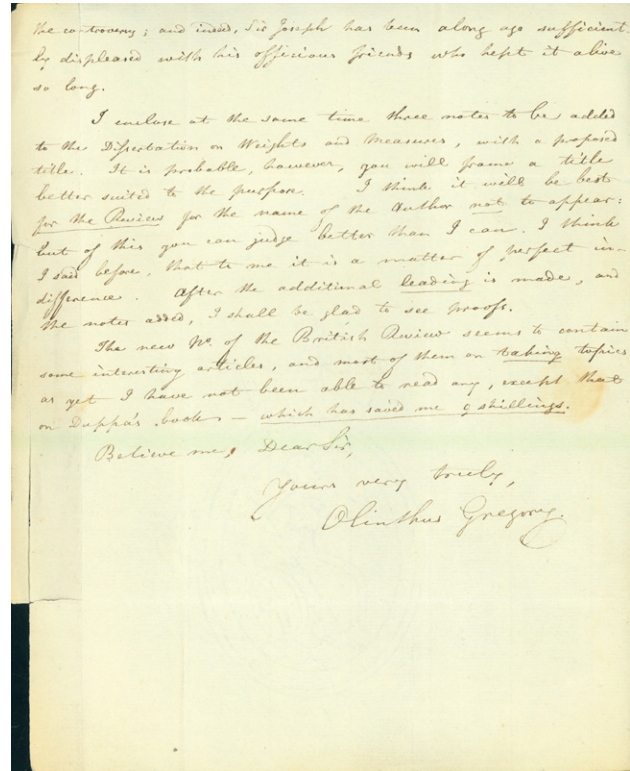 the controversy; and indeed, Sir Joseph has been along ago sufficient-
ly displeased with his officious friends who kept it alive
so long.
I enclose at the same time three notes to be added
to the Dissertation on Weights and Measures, with a proposed
title. It is probable, however, you will frame a title
better suited to the purpose. I think it will be best
for the Review for the name of the Author not to appear:
but of this you can judge better than I can. I think
I said before, that to me it is a matter of perfect in-
difference. After the additional leading is made, and
the notes added, I shall be glad to see proofs.
The new No. of the British Review seems to contain
some interesting articles, and most of them on taking topics
as yet I have not been able to read any, except that
on Duppa's book — which has saved me 9 shillings.
Believe me, Dear Sir,
Yours very truly,
Olinthus Gregory.